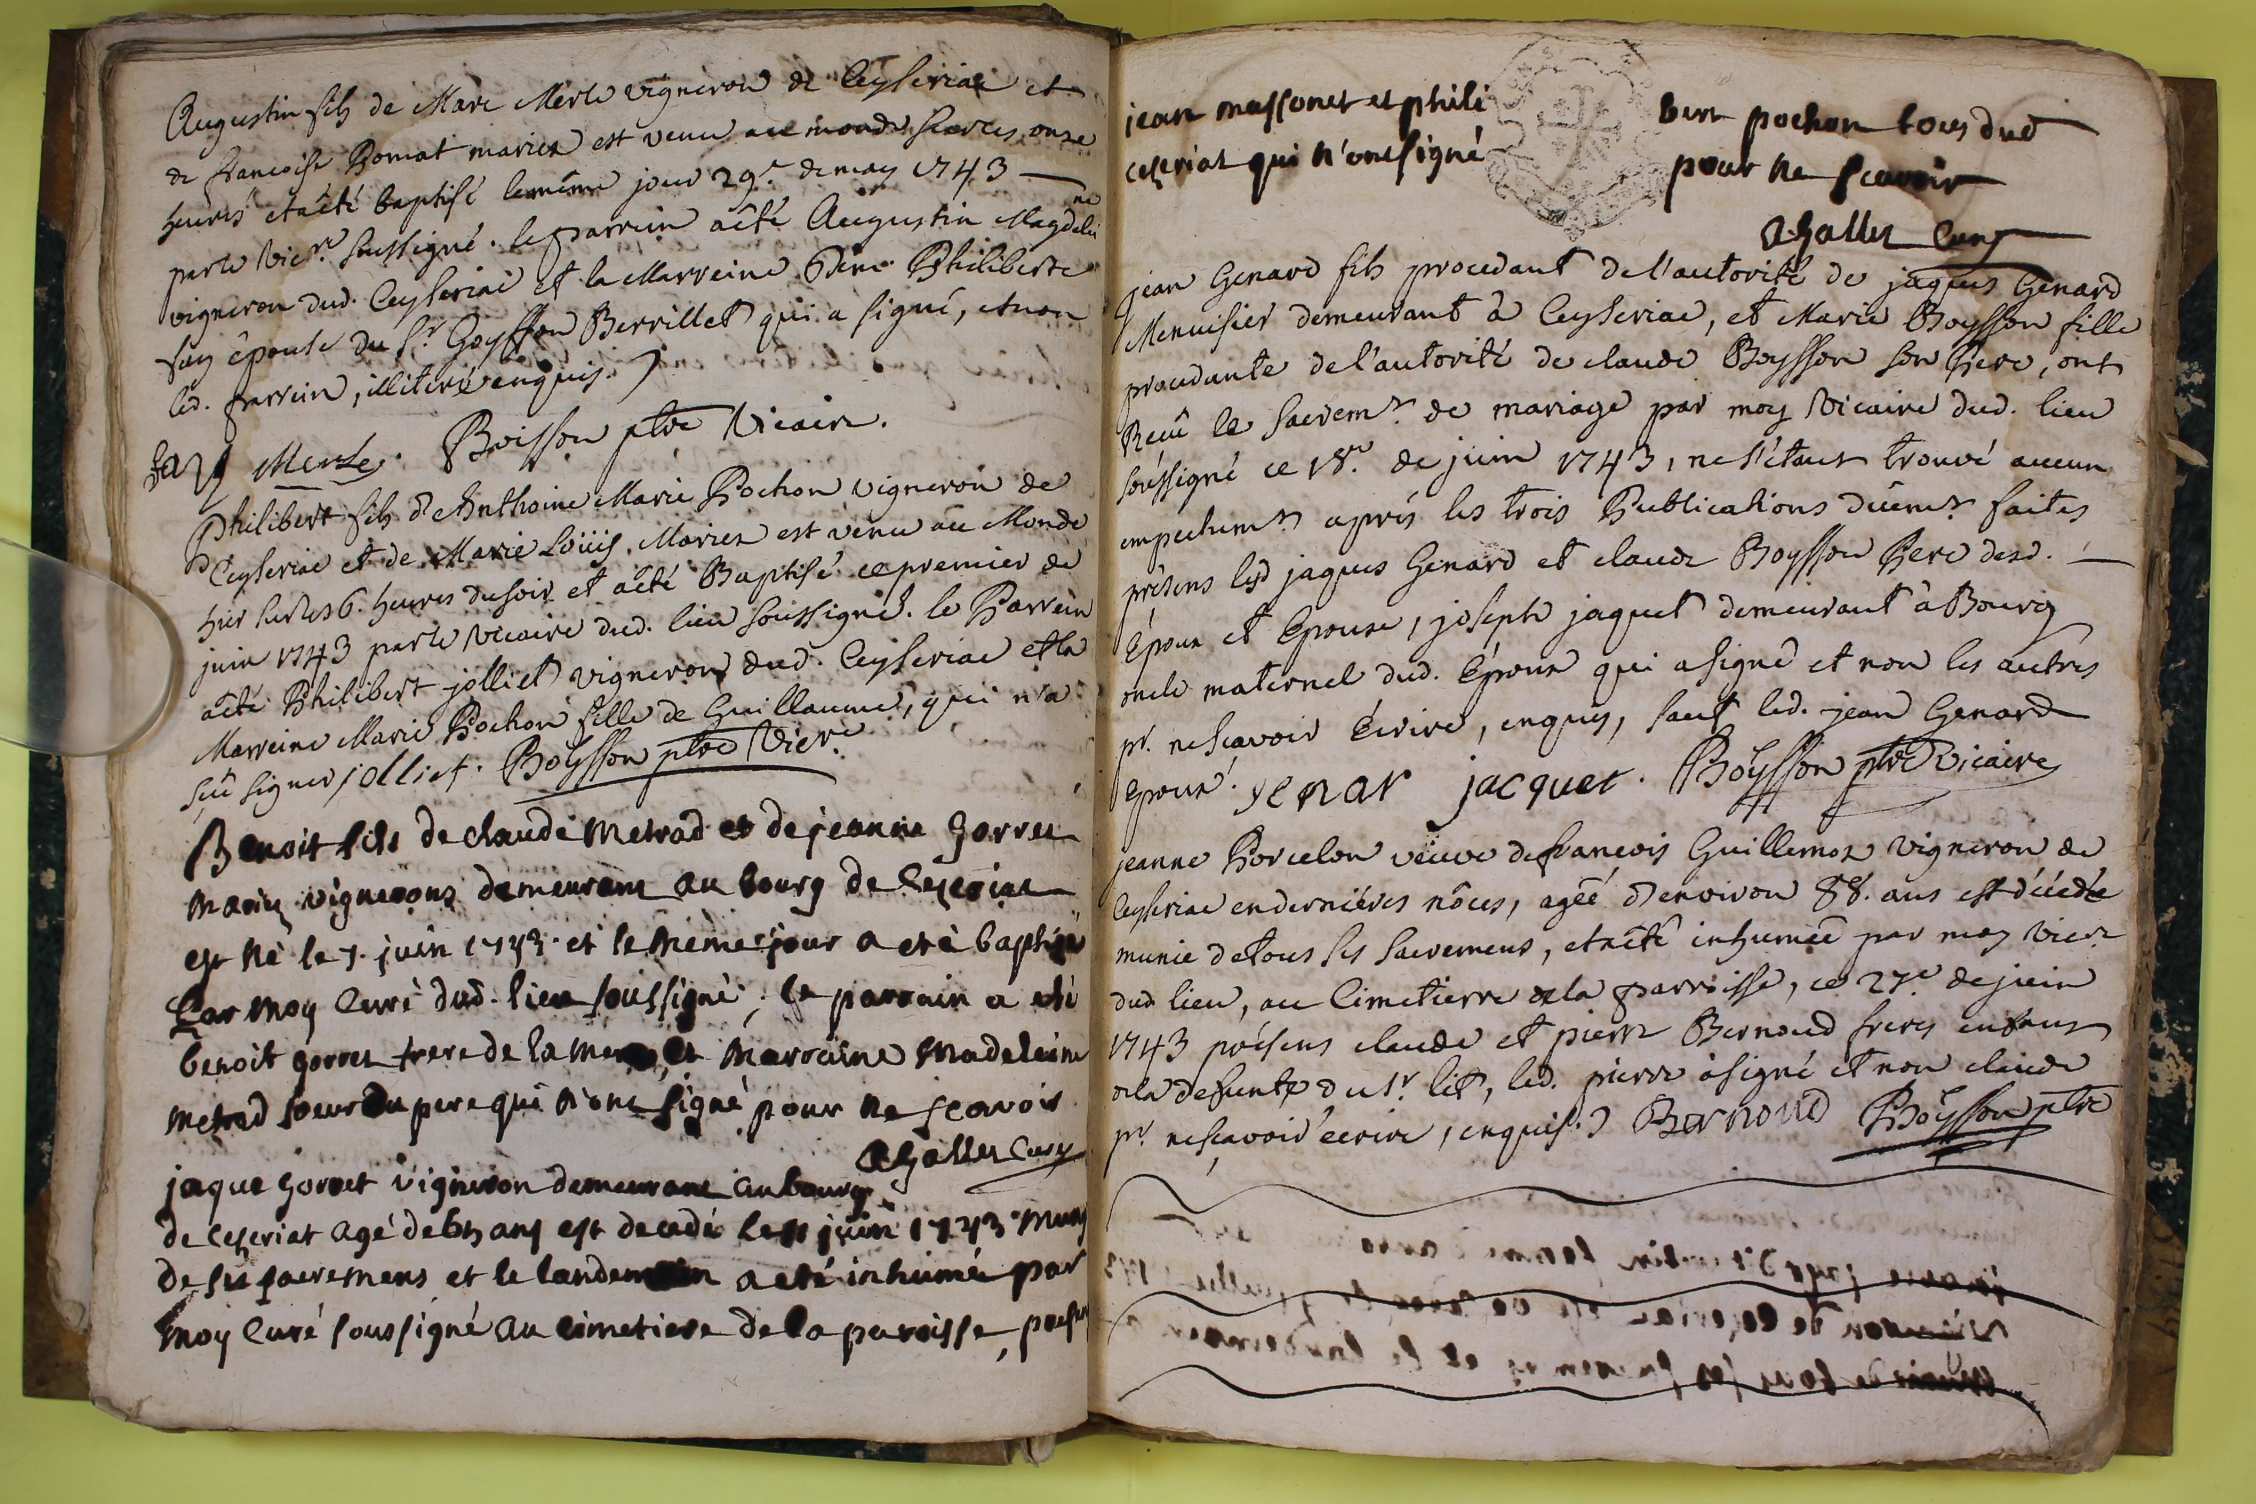 Augustin fils de Marc Merle vigneron de Ceyseriac et
de francoise Bomat mariez est venu au monde sur les onze
heures et a été baptisé le même jour 29e. de may 1743 —
par le Vicre. soussigné. le parrein a été Augustin Magdelei
ne
vigneron dud. Ceyseriac et la Marreine Philiberte
épouse du Sr. Goyffon Berrillet qui a signé, et non
led. parrein, illiteré enquis.
Merle. Boisson ptre Vicaire.
Philibert fils d'Anthoine Marie Pochon vigneron de
Ceyseriac et de Marie Loüis, Mariez est venu au Monde
hier sur les 6. heures du soir et a été Baptisé ce premier de
juin 1743 par le Vicaire dud. lieu soussigné. le Parrein
a été Philibert jolliet vigneron dud. Ceyseriac et la
Marreine Marie Pochon fille de Guillaume, qui n'a
sçû signer jolliet. Boysson ptre Vicre.
Benoit fils de claude Metrad et de jeanne Gorret
Mariez vignerons demeurant au bourg de
est né le 7. juin 1743. et le même jour a eté baptizé
par moy Curé dud. lieu soussigné; le parrain a eté
benoit gorret frere de la mere, et Marraine Madeleine
Metrad soeur du pere qui n'ont signé pour ne scavoir
Curé
jaque Gorret vigneron demeurant au bourg
de Ceseriat agé de ans est decedé le 11 juin 1743. muny
de ses sacremens et le landemain a eté inhumé par
moy Curé soussigné au cimetiere de la paroisse, presens
jean massonet et phili bert pochon tous dud
ceseriat qui n'ont signé pour ne scavoir
Curé
jean Genard fils procedant de l'autorité de jaques Genard
Menuisier demeurant à Ceyseriac, et Marie Boysson fille
procedante de l'autorité de claude Boysson son Pere, ont
Reçû le sacremt. de mariage par moy Vicaire dud. lieu
soussigné ce 18e. de juin 1743, ne s'étant trouvé aucun
empechemt. aprés les trois Publications düemt. faites
présens lesd jaques Genard et claude Boysson Pere desd. —
Epoux et Epouse, joseph jaquet demeurant à Bourg
oncle maternel dud. Epoux qui a signé et non les autres
pr. ne sçavoir Ecrire, enquis, sauf led. jean Genard
epoux. yenar jacquet. Boysson ptre Vicaire
jeanne Porcelon veuve de francois Guillemoz vigneron de
Ceyseriac en derniéres nôces, agéé d'environ 88. ans est décédée
munie de tous ses sacremens, et a été inhuméé par moy Vicre
dud lieu, au Cimetierre de la parroisse, ce 27e de juin
1743 présens claude et pierre Bernoud freres enfans
de la defunte du 1r. lit, led. pierre a signé et non claude
pr. ne sçavoir écrire, enquis. Bernoud Boysson ptre